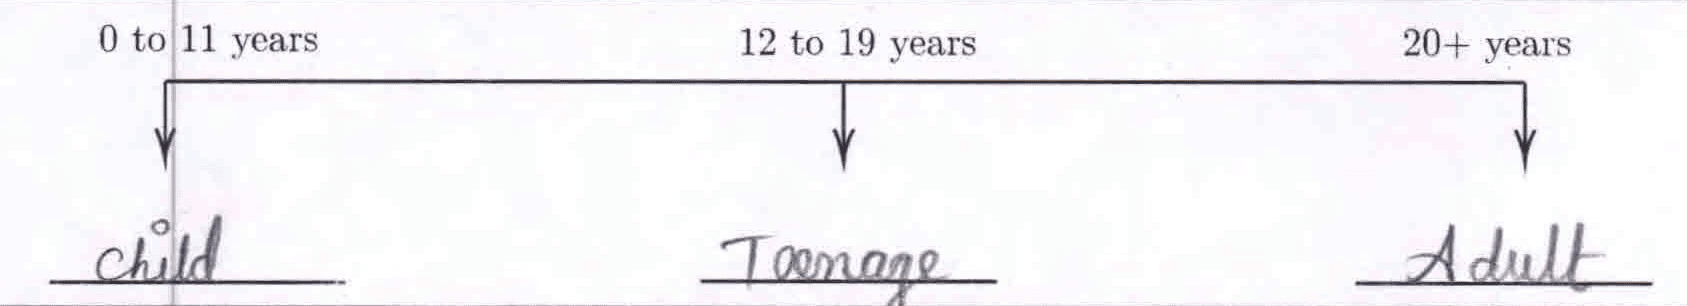 0 to 11 years 12 to 19 years 20+ years
child Teenage Adult